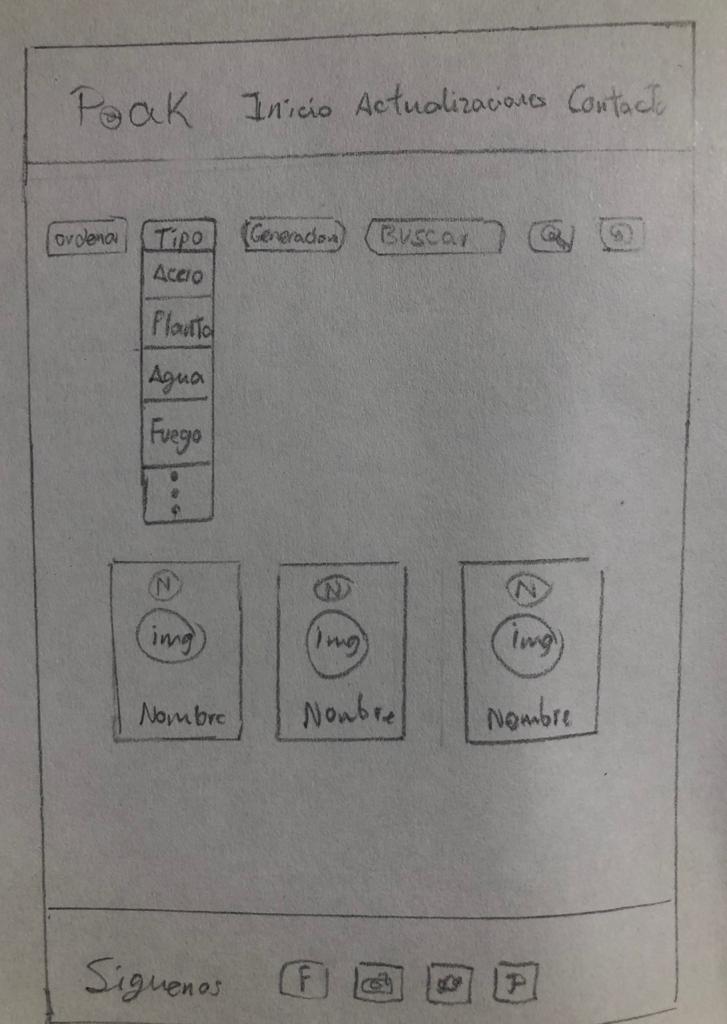 Peak Inicio Actualizaciones Contacto
ordenar Tipo Generacion Buscar
Acero
Planta
Agua
Fuego
N N N
img img img
Nombre Nombre Nombre
Siguenos F P